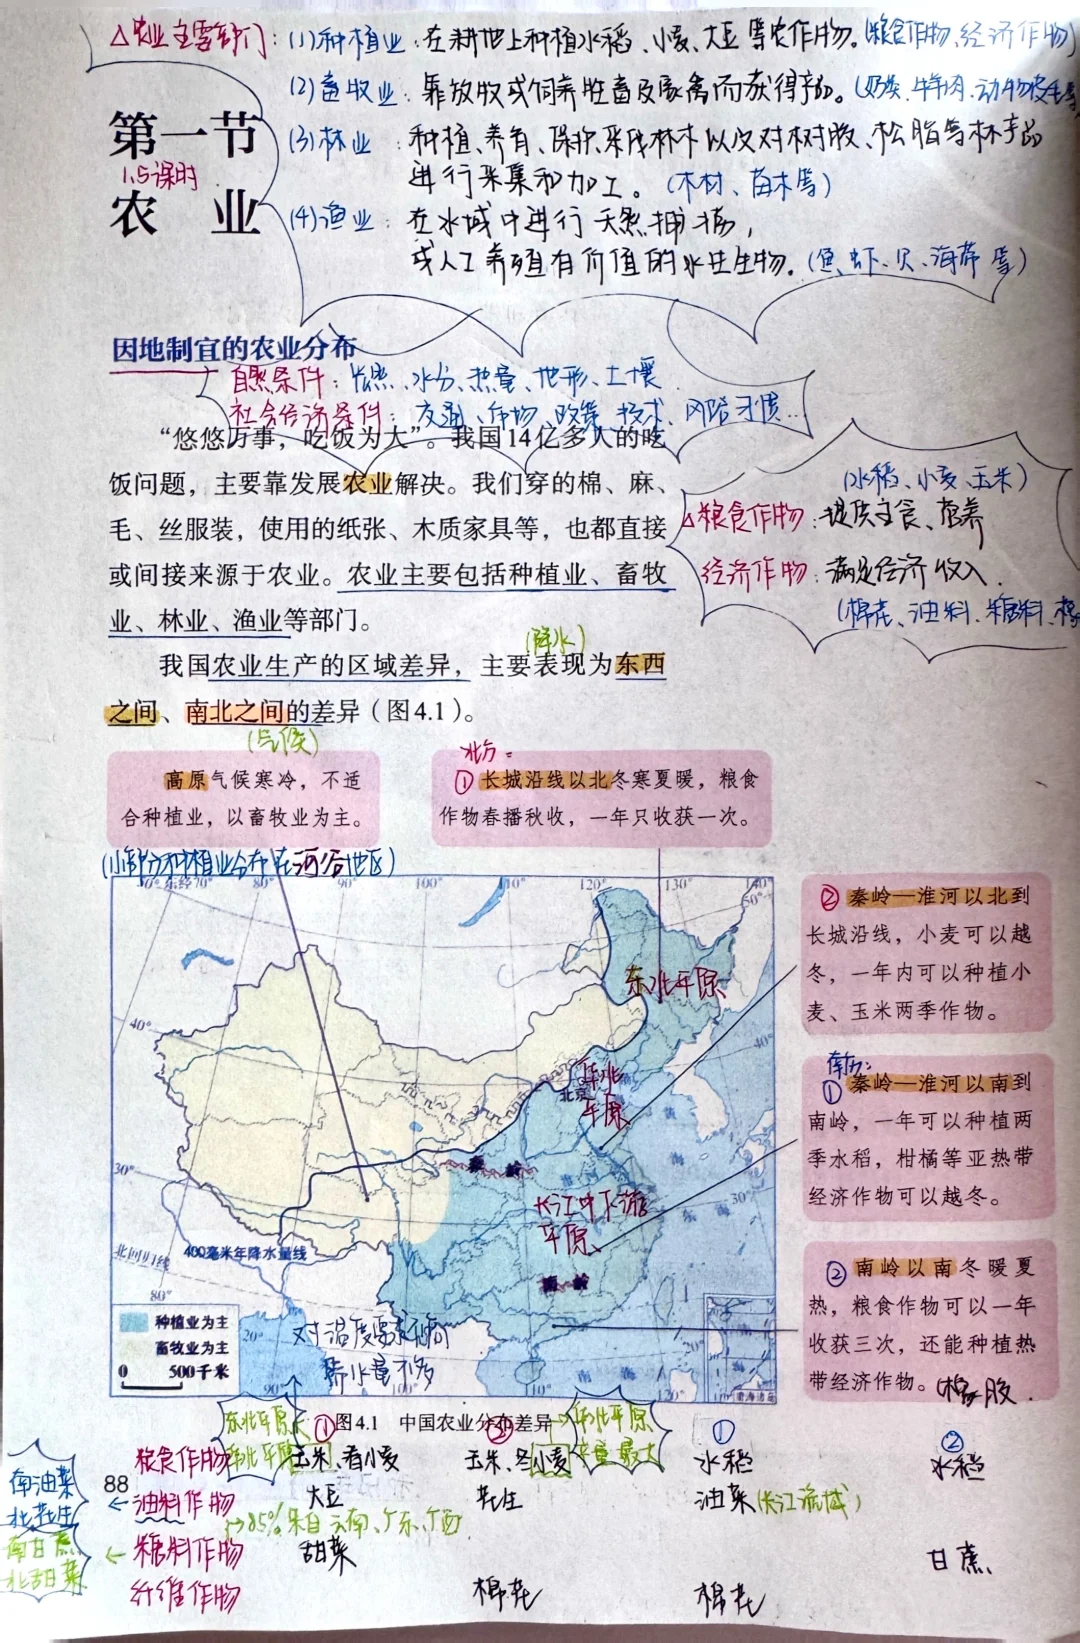 △农业主要部门：(1)种植业：在耕地上种植水稻、小麦、大豆等农作物。(粮食作物、经济作物)
(2)畜牧业：靠放牧或饲养牲畜及家禽而获得产品。(奶类、牛羊肉、动物皮毛等
第一节
1.5课时
农 业
(3)林业：种植、养育、保护、采伐林木以及对树胶、松脂等林产品
进行采集和加工。(木材、苗木等)
(4)渔业：在水域中进行天然捕捞，
或人工养殖有价值的水生生物。(鱼、虾、贝、海带等)
因地制宜的农业分布
自然条件：光照、水分、热量、地形、土壤
社会经济条件：交通、市场、政策、技术、风俗习惯...
“悠悠万事，吃饭为大”。我国14亿多人的吃
饭问题，主要靠发展农业解决。我们穿的棉、麻、
毛、丝服装，使用的纸张、木质家具等，也都直接
或间接来源于农业。农业主要包括种植业、畜牧
业、林业、渔业等部门。
(水稻、小麦、玉米)
△粮食作物：提供主食、营养
经济作物：满足经济收入.
(棉花、油料、糖料、橡
(降水)
我国农业生产的区域差异，主要表现为东西
之间、南北之间的差异（图4.1）。
(气候)
高原气候寒冷，不适
合种植业，以畜牧业为主。
(小部分种植业分布在河谷地区)
北方：
①长城沿线以北冬寒夏暖，粮食
作物春播秋收，一年只收获一次。
②秦岭—淮河以北到
长城沿线，小麦可以越
冬，一年内可以种植小
麦、玉米两季作物。
南方：
①秦岭—淮河以南到
南岭，一年可以种植两
季水稻，柑橘等亚热带
经济作物可以越冬。
②南岭以南冬暖夏
热，粮食作物可以一年
收获三次，还能种植热
带经济作物。橡胶.
东经70° 80° 90° 100° 110° 120° 130° 140°
50°
东北平原
40° 40°
华北
平原
北京
黄
海
秦岭
30° 30°
长江中下游
平原
东海
400毫米年降水量线
北回归线
南岭
80°
种植业为主
畜牧业为主
0 500千米
20° 20°
对温度要求不高
需水量不多
南
海
南海诸岛
90° 100° 110° 120°
图4.1 中国农业分布差异
东北平原
华北平原
华北平原
产量最大
① ② ① ②
粮食作物 玉米、春小麦 玉米、冬小麦 水稻 水稻
88
南油菜
北花生
←油料作物 大豆 花生 油菜(长江流域)
→85%来自云南、广东、广西
南甘蔗
北甜菜
←糖料作物 甜菜 甘蔗
纤维作物 棉花 棉花